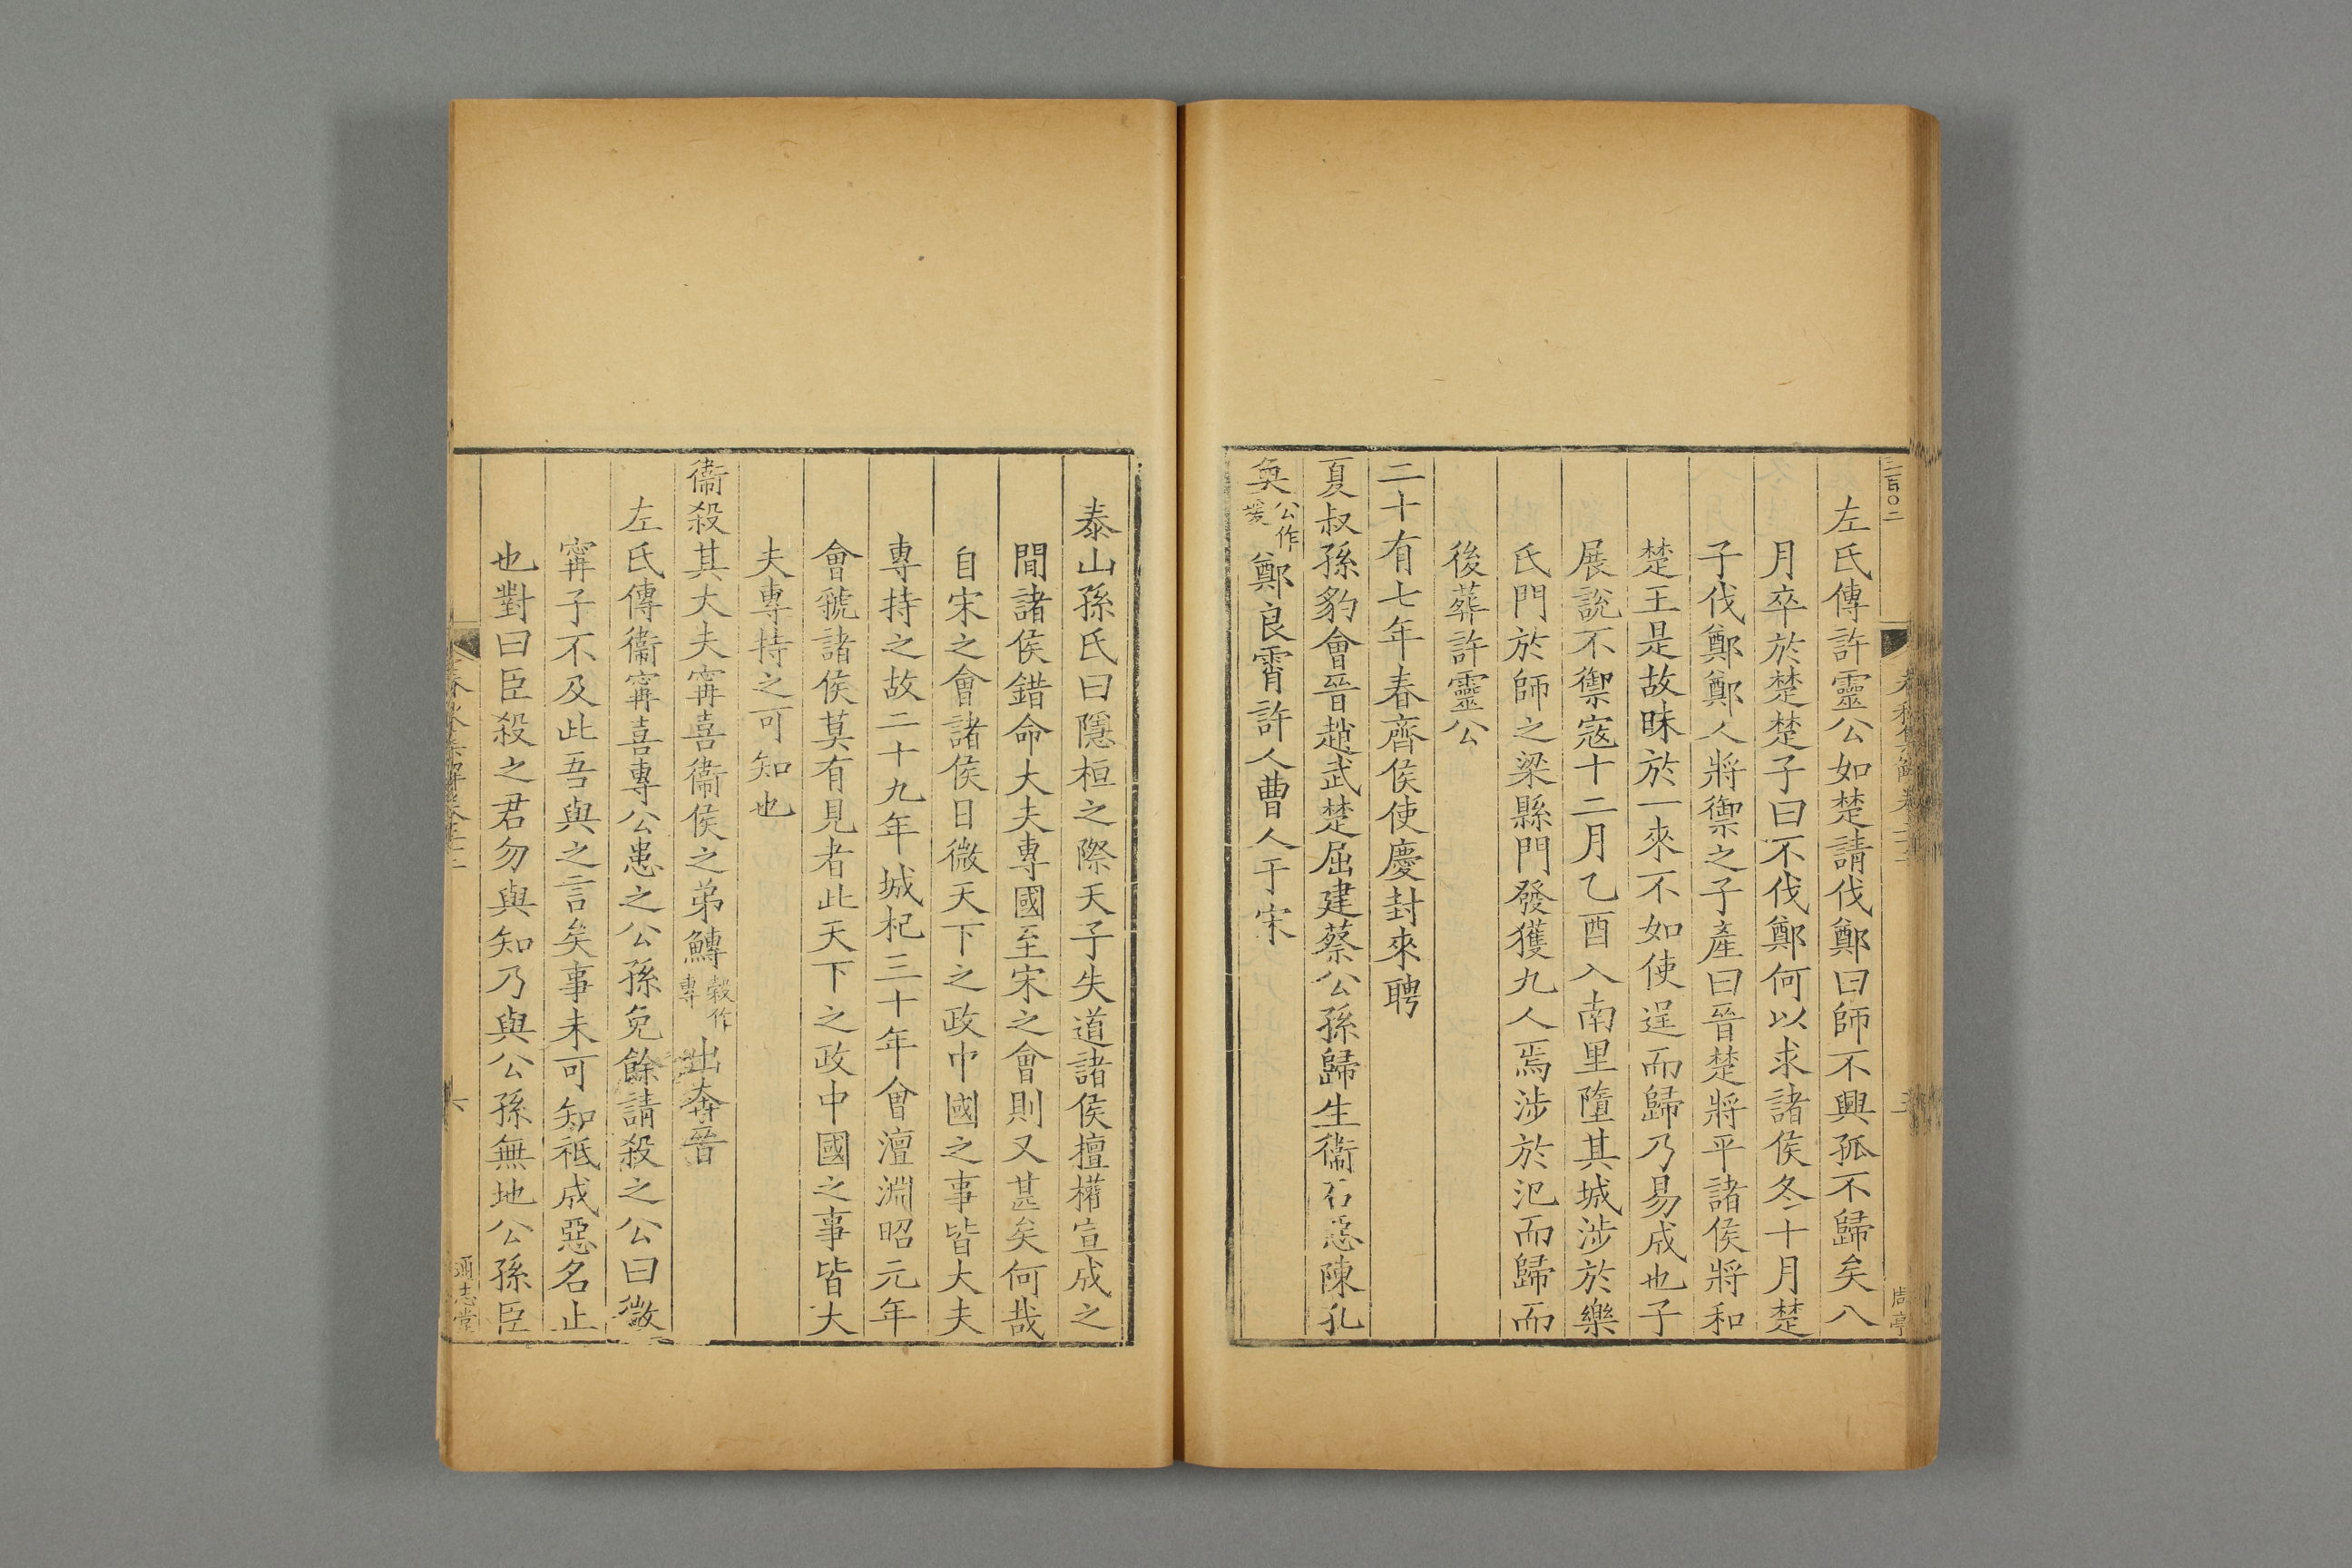 左氏傳許靈公如楚請伐鄭曰師不興孤不歸矣八
月卒於楚楚子曰不伐鄭何以求諸侯冬十月楚
子伐鄭鄭人將禦之子產曰晉楚將平諸侯將和
楚王是故昧於一來不如使逞而歸乃易成也子
展說不禦寇十二月乙酉入南里墮其城涉於樂
氏門於師之梁縣門發獲九人焉涉於汜而歸而
後葬許靈公
二十有七年春齊侯使慶封來聘
夏叔孫豹會晉趙武楚屈建蔡公孫歸生衞石惡陳孔
奐公作瑗鄭良霄許人曹人于宋
泰山孫氏曰隱桓之際天子失道諸侯擅權宣成之
間諸侯錯命大夫專國至宋之會則又甚矣何哉
自宋之會諸侯日微天下之政中國之事皆大夫
專持之故二十九年城杞三十年會澶淵昭元年
會虢諸侯莫有見者此天下之政中國之事皆大
夫專持之可知也
衞殺其大夫甯喜衞侯之弟鱄穀作專出奔晉
左氏傳衞甯喜專公患之公孫免餘請殺之公曰微
甯子不及此吾與之言矣事未可知祗成惡名止
也對曰臣殺之君勿與知乃與公孫無地公孫臣
春秋集解卷
六
通志堂